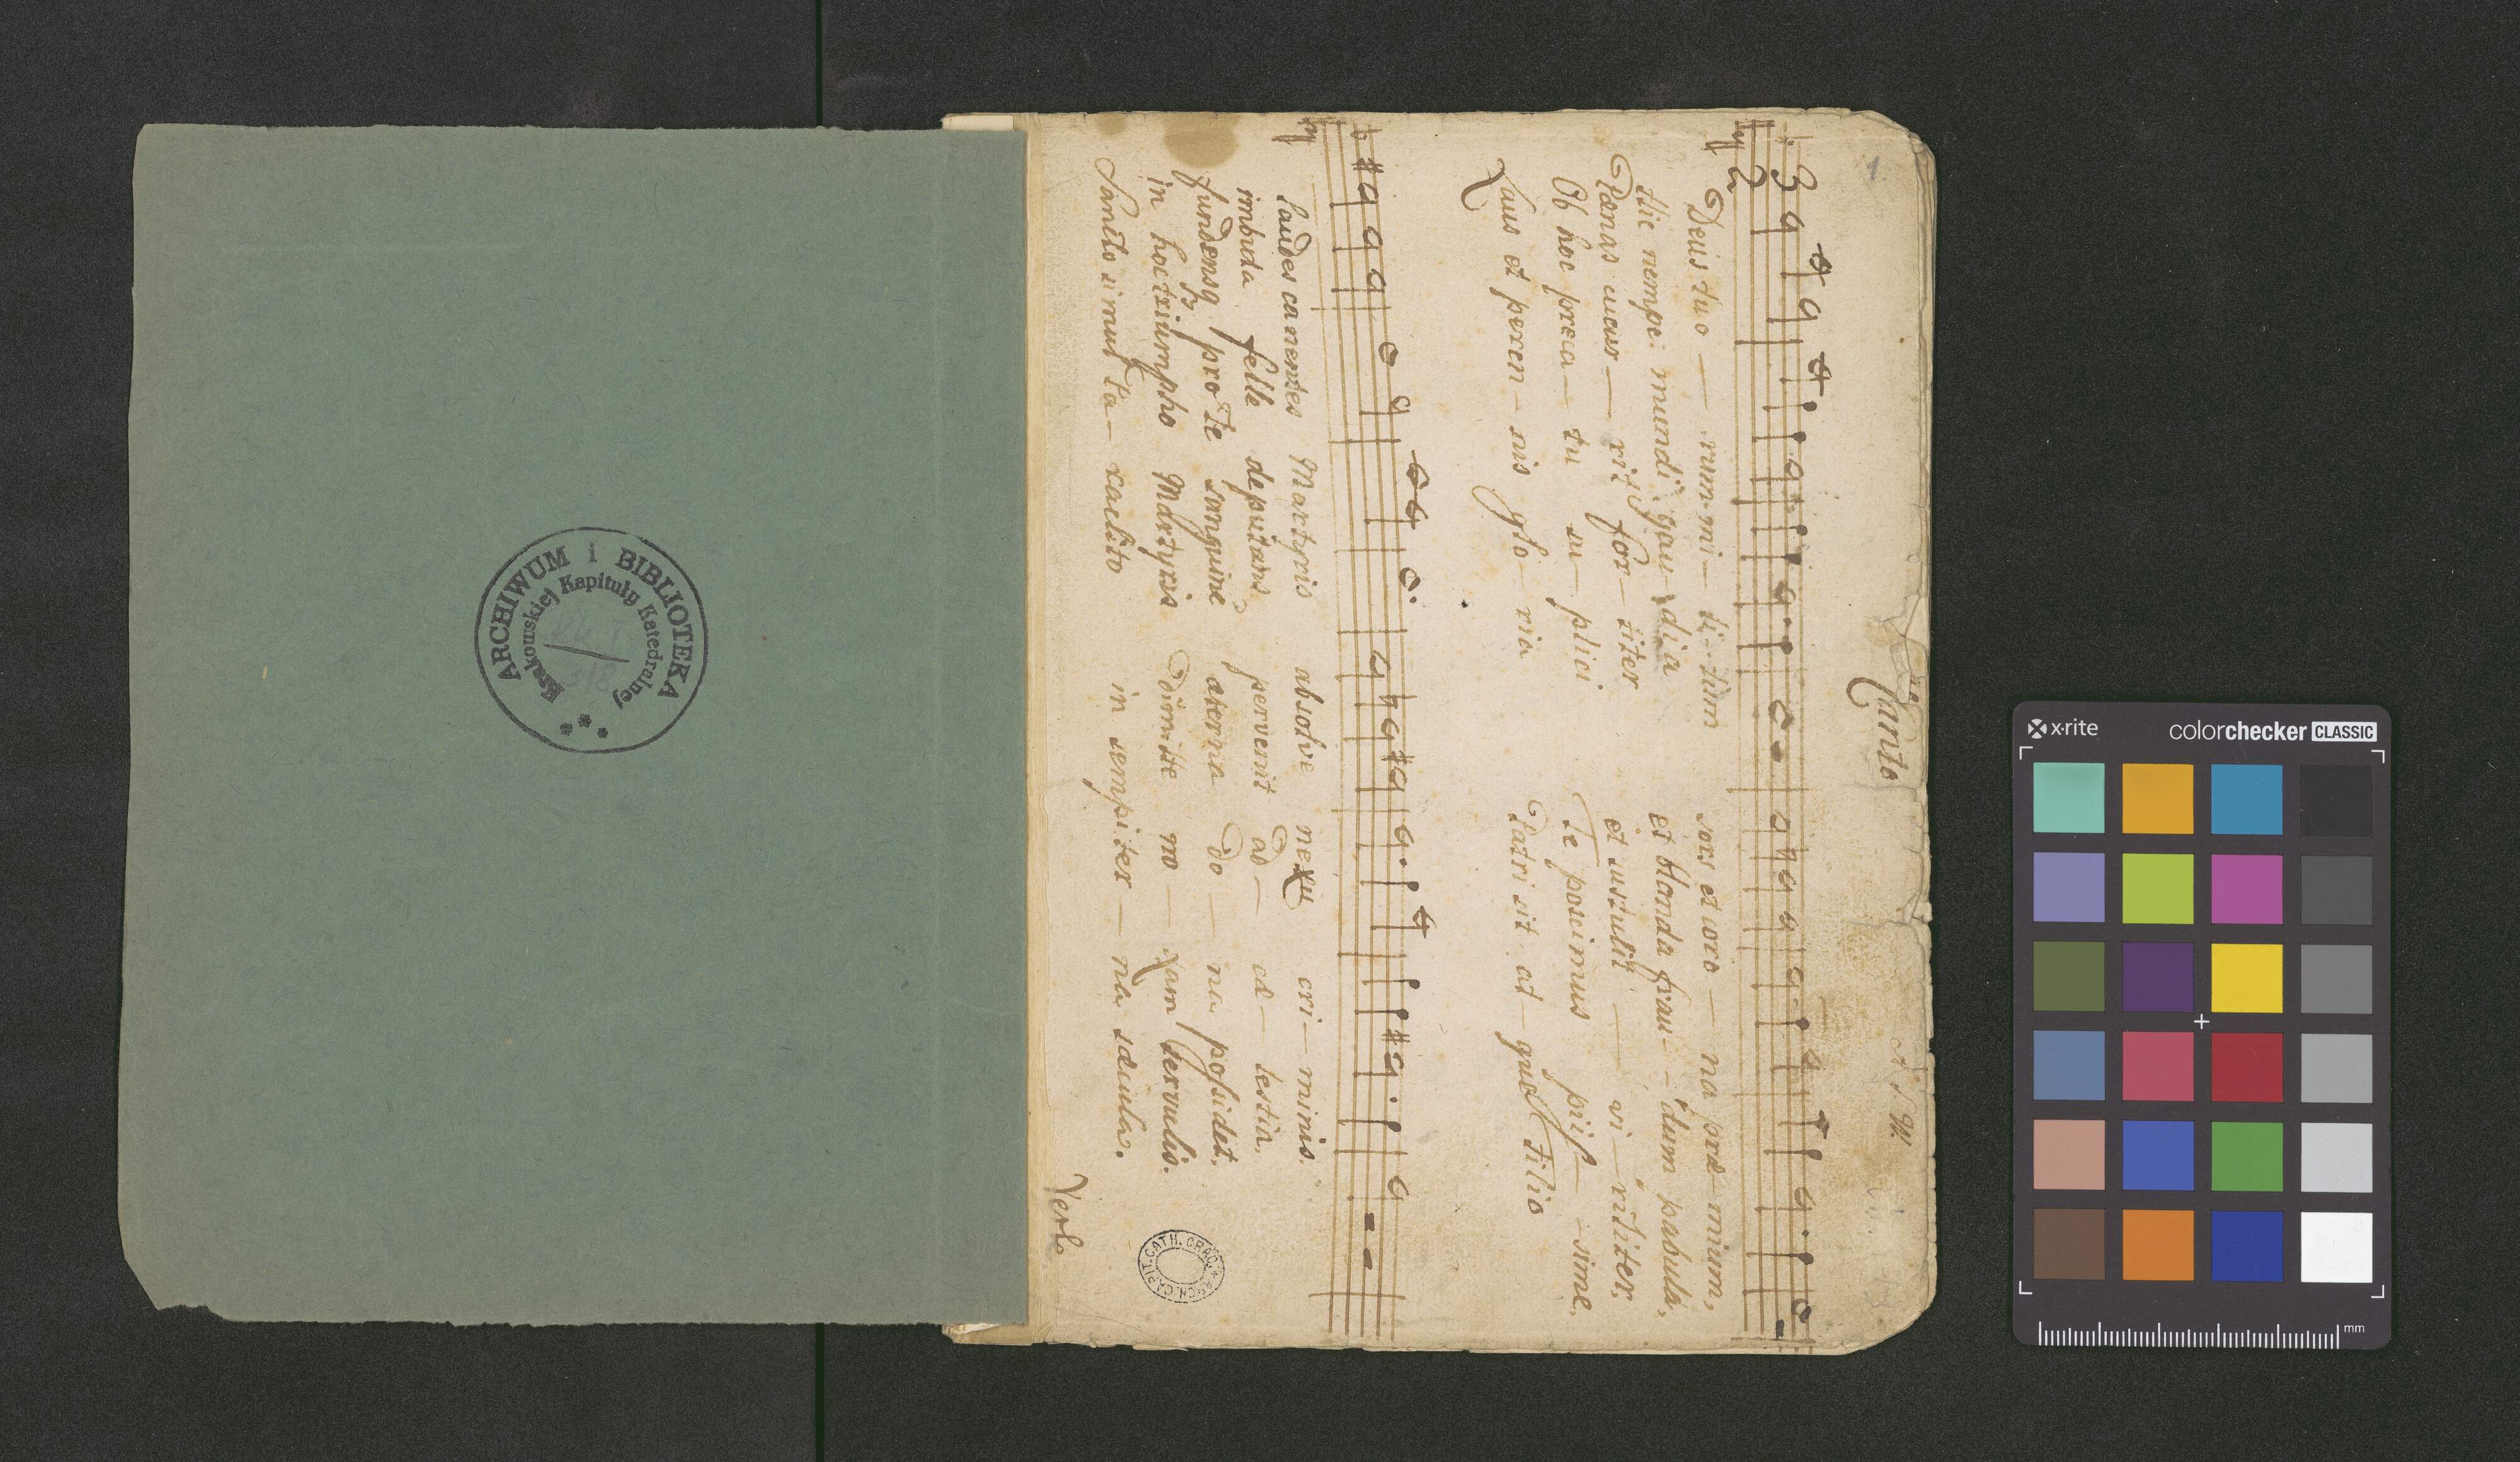 ARCHIWUM i BIBLIOTEKA
Krakowskiej Kapituły Katedralnej
1.
Canto
3
2
Deus tuo — rum mi — li-tum sors et coro — na præ-mium,
Hic nempe mundi gau-dia et blanda frau — dum pabula,
Pœnas cucur — rit for — titer et sustulit — vi — riliter,
Ob hoc preca — tu su — plici Te poscimus piis — sime,
Laus et peren — nis glo — ria Patri sit at — que Filio
laudes canentes Martyris absolve nexu cri — minis.
imbuta felle deputans pervenit ad — cæ — lestia.
fundensq pro te sanguine æterna do — na possidet.
in hoc triumpho Martyris Dimitte no — xam servulis.
Sancto simul Pa — raclito in sempiter — na sæcula.
ARCH. CAPIT. CATH. CRAC.
x·rite
colorchecker CLASSIC
mm